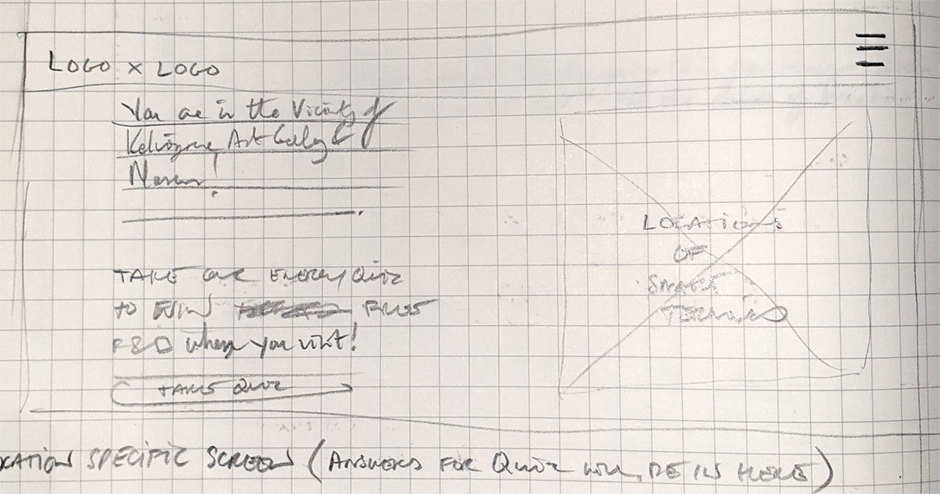 LOGO x LOGO
You are in the Vicinity of
Kelvingrove Art Gallery &
Museum!
TAKE our ENERGY QUIZ
to WIN FREE
F&D when you visit!
TAKE QUIZ
LOCATIONS
OF
SMART
OCATION SPECIFIC SCREEN (ANSWERS FOR QUIZ WILL BE IN HERE)